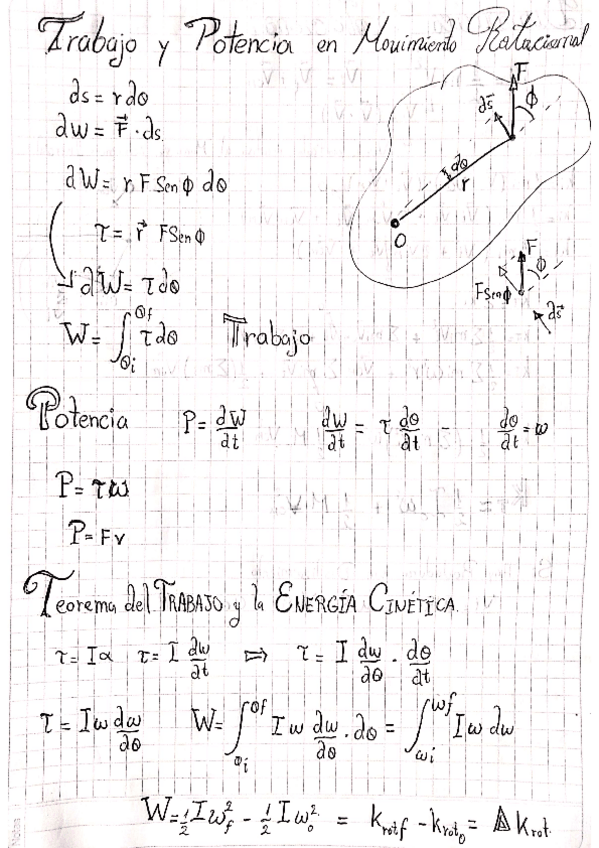 Trabajo y Potencia en Movimiento Rotacional
ds = r dθ
dW = F⃗ · ds
dW = r F Sen Φ dθ
τ = r⃗ F Sen Φ
dW = τ dθ
W = ∫θi^θf τ dθ Trabajo
F
Φ
ds⃗
dθ
r
O
F
Φ
F Sen Φ
ds⃗
Potencia P = dW/dt dw/dt = τ dθ/dt - dθ/dt = ω
P = τω
P = Fv
Teorema del TRABAJO y la ENERGÍA CINÉTICA.
τ = Iα τ = I dw/dt ⇒ τ = I dw/dθ · dθ/dt
τ = Iω dω/dθ W = ∫θi^θf I ω dw/dθ · dθ = ∫ωi^ωf I ω dw
W = ½ I ωf² - ½ I ω₀² = krotf - krot₀ = Δ Krot.